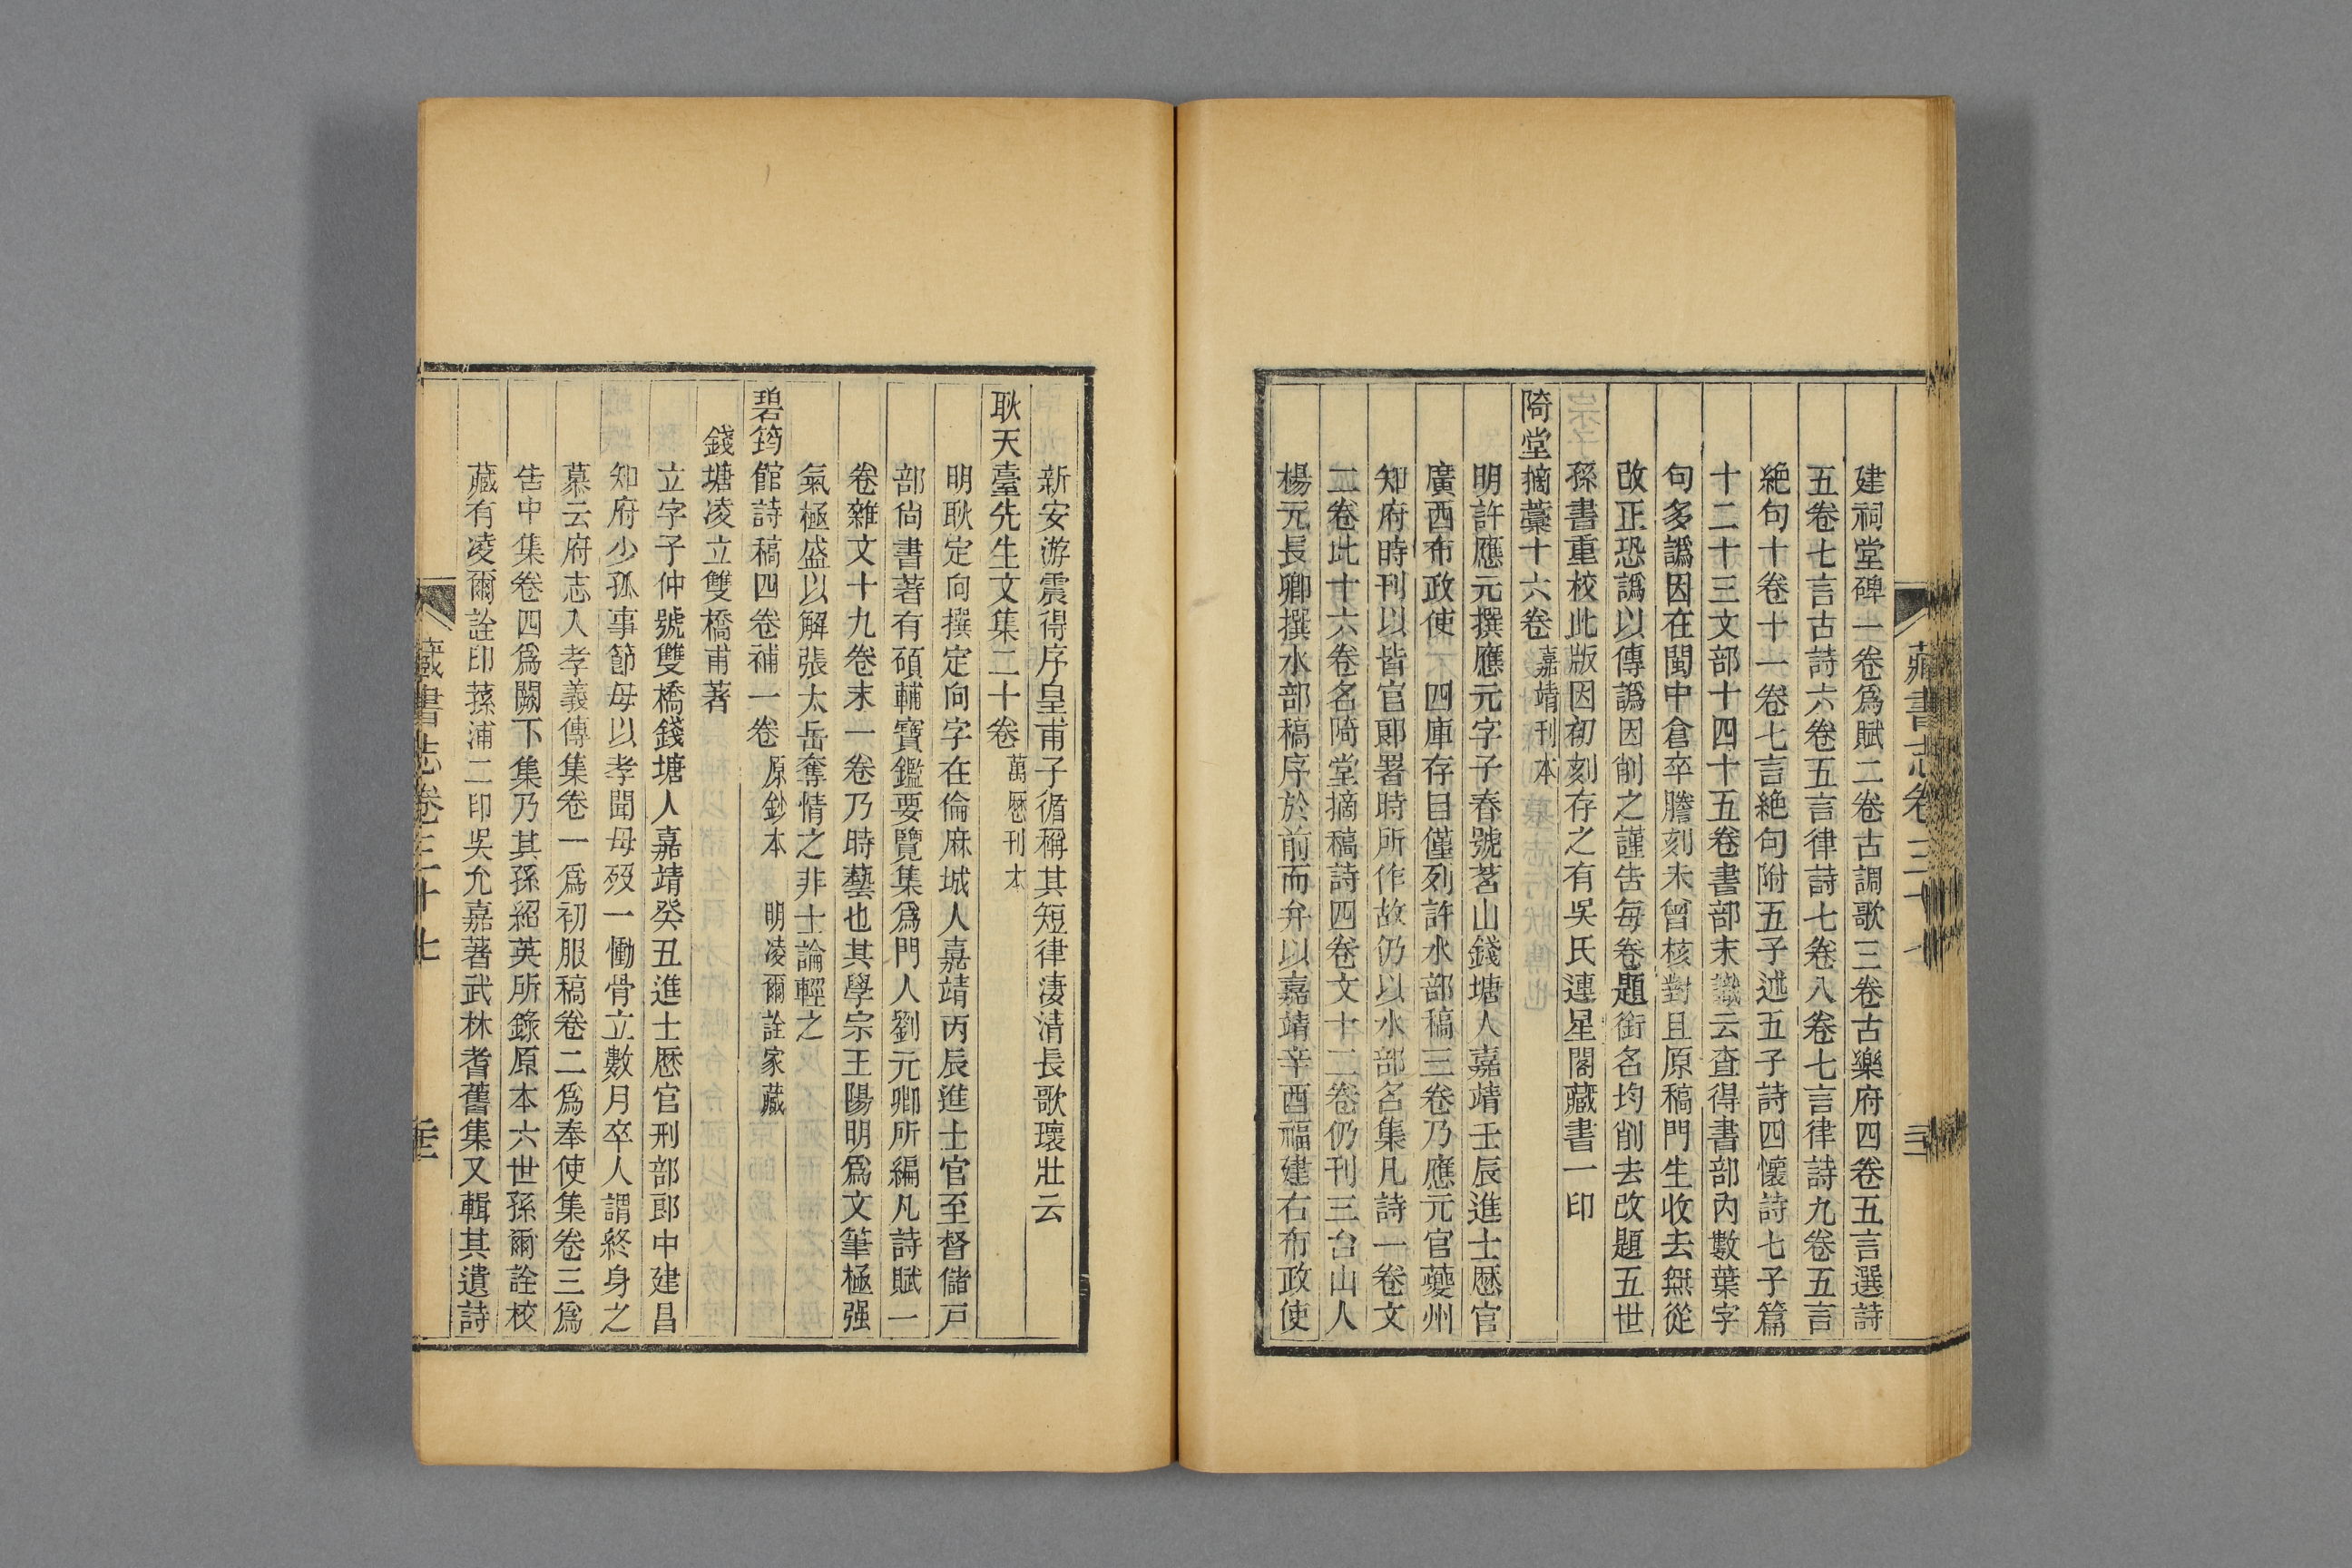 建祠堂碑一卷爲賦二卷古調歌三卷古樂府四卷五言選詩
五卷七言古詩六卷五言律詩七卷八卷七言律詩九卷五言
絶句十卷十一卷七言絶句附五子述五子詩四懷詩七子篇
十二十三文部十四十五卷書部末識云查得書部内數葉字
句多譌因在閩中倉卒謄刻未曾核對且原稿門生收去無從
改正恐譌以傳譌因削之謹告每卷題銜名均削去改題五世
孫書重校此版因初刻存之有吳氏連星閣藏書一印
陭堂摘藁十六卷 嘉靖刊本
明許應元撰應元字子春號茗山錢塘人嘉靖壬辰進士厯官
廣西布政使 四庫存目僅列許水部稿三卷乃應元官夔州
知府時刊以皆官郎署時所作故仍以水部名集凡詩一卷文
二卷此十六卷名陭堂摘稿詩四卷文十二卷仍刊三台山人
楊元長卿撰水部稿序於前而弁以嘉靖辛酉福建右布政使
新安游震得序皇甫子循稱其短律淒清長歌瓌壯云
耿天臺先生文集二十卷 萬厯刊本
明耿定向撰定向字在倫麻城人嘉靖丙辰進士官至督儲戸
部尙書著有碩輔寶鑑要覽集爲門人劉元卿所編凡詩賦一
卷雜文十九卷末一卷乃時藝也其學宗王陽明爲文筆極强
氣極盛以解張太岳奪情之非士論輕之
碧筠館詩稿四卷補一卷 原鈔本 明凌爾詮家藏
錢塘凌立雙橋甫著
立字子仲號雙橋錢塘人嘉靖癸丑進士厯官刑部郎中建昌
知府少孤事節母以孝聞母歿一慟骨立數月卒人謂終身之
慕云府志入孝義傳集卷一爲初服稿卷二爲奉使集卷三爲
告中集卷四爲闕下集乃其孫紹英所錄原本六世孫爾詮校
藏有凌爾詮印蓀浦二印吳允嘉著武林耆舊集又輯其遺詩
藏書志卷三十七